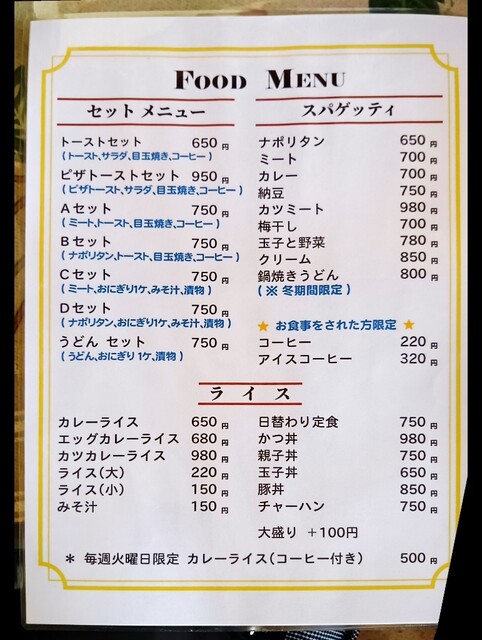 FOOD MENU
セットメニュー
トーストセット 650円
(トースト、サラダ、目玉焼き、コーヒー)
ピザトーストセット 950円
(ピザトースト、サラダ、目玉焼き、コーヒー)
Aセット 750円
(ミート、トースト、目玉焼き、コーヒー)
Bセット 750円
(ナポリタン、トースト、目玉焼き、コーヒー)
Cセット 750円
(ミート、おにぎり1ケ、みそ汁、漬物)
Dセット 750円
(ナポリタン、おにぎり1ケ、みそ汁、漬物)
うどん セット 750円
(うどん、おにぎり 1ケ、漬物)
スパゲッティ
ナポリタン 650円
ミート 700円
カレー 700円
納豆 750円
カツミート 980円
梅干し 700円
玉子と野菜 780円
クリーム 850円
鍋焼きうどん 800円
(※ 冬期間限定)
★ お食事をされた方限定 ★
コーヒー 220円
アイスコーヒー 320円
ライス
カレーライス 650円
エッグカレーライス 680円
カツカレーライス 980円
ライス(大) 220円
ライス(小) 150円
みそ汁 150円
日替わり定食 750円
かつ丼 980円
親子丼 750円
玉子丼 650円
豚丼 850円
チャーハン 750円
大盛り +100円
* 毎週火曜日限定 カレーライス(コーヒー付き) 500円